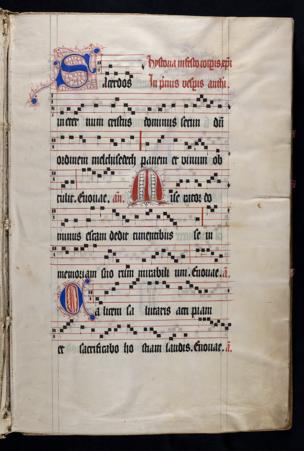 hystoria in festo corpis xpi
Sacerdos In primis vespis anth.
in eter num cristus dominus secun dū
ordinem melchisedech panem et vinum ob
tulit. Euouae. an. Mise rator do
minus escam dedit timentibus se in
memoriam suo rum mirabili um. Euouae. a.
Ca licem sa lutaris acci piam
et sacrificabo ho stiam laudis. Euouae. a.